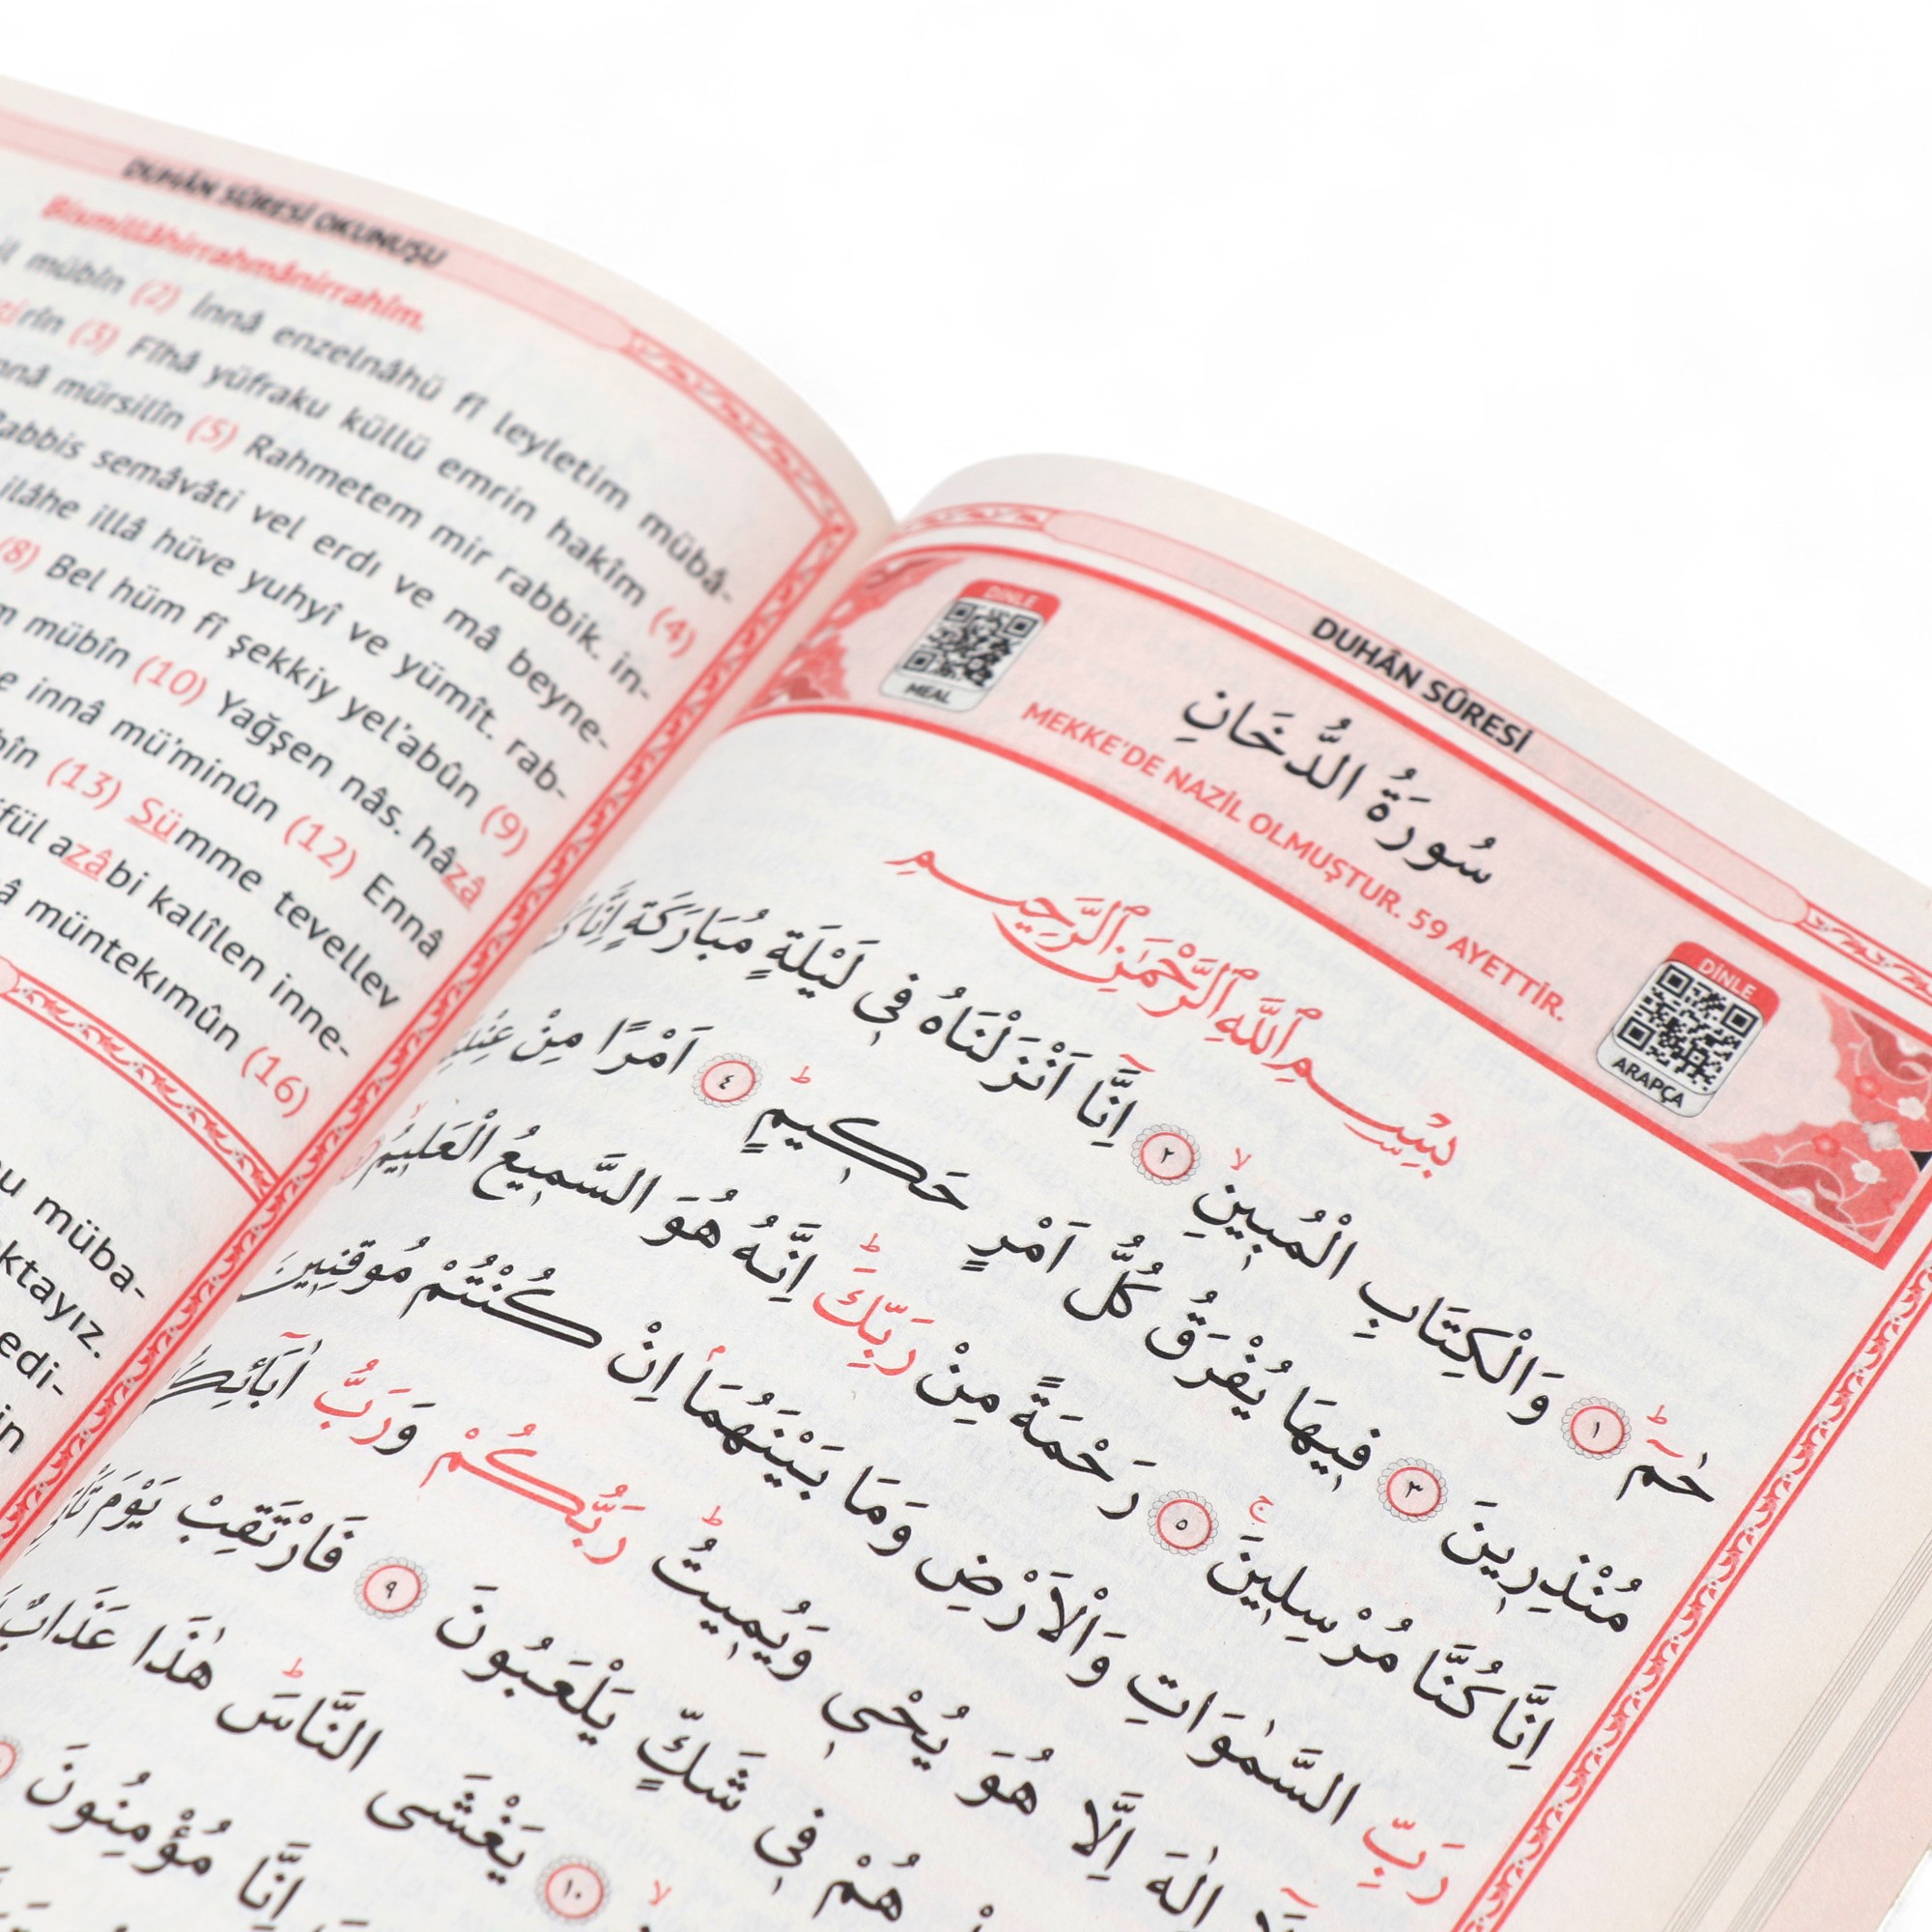 DUHÂN SÛRESİ OKUNUŞU
Bismillâhirrahmânirrahîm.
mübîn (2) İnnâ enzelnâhü fî leyletim mübâ-
rîn (3) Fîhâ yüfraku küllü emrin hakîm (4)
mürsilîn (5) Rahmetem mir rabbik. in-
semâvâti vel erdı ve mâ beyne-
ilâhe illâ hüve yuhyî ve yümît. rab-
(8) Bel hüm fî şekkiy yel'abûn (9)
mübîn (10) Yağşen nâs. hâzâ
innâ mü'minûn (12) Ennâ
(13) Sümme tevellev
azâbi kalîlen inne-
müntekımûn (16)
müba-
ktayız.
edi-
in
DUHÂN SÛRESİ
DİNLE
MEAL
سُورَةُ الدُّخَانِ
MEKKE'DE NAZİL OLMUŞTUR. 59 AYETTİR.
DİNLE
ARAPÇA
بِسْمِ اللّٰهِ الرَّحْمٰنِ الرَّحِيمِ
حٰمٓ ۜ ﴿١﴾ وَالْكِتَابِ الْمُبِينِ ۙ ﴿٢﴾ اِنَّٓا اَنْزَلْنَاهُ فِى لَيْلَةٍ مُبَارَكَةٍ اِنَّا
مُنْذِرِينَ ﴿٣﴾ فِيهَا يُفْرَقُ كُلُّ اَمْرٍ حَكِيمٍ ۜ ﴿٤﴾ اَمْرًا مِنْ
اِنَّا كُنَّا مُرْسِلِينَ ۚ ﴿٥﴾ رَحْمَةً مِنْ رَبِّكَ ۜ اِنَّهُ هُوَ السَّمِيعُ الْعَلِيمُ
رَبِّ السَّمٰوَاتِ وَالْاَرْضِ وَمَا بَيْنَهُمَا ۢ اِنْ كُنْتُمْ مُوقِنِينَ
اِلٰهَ اِلَّا هُوَ يُحْىِ وَيُمِيتُ ۜ رَبُّكُمْ وَرَبُّ
هُمْ فِى شَكٍّ يَلْعَبُونَ ﴿٩﴾ فَارْتَقِبْ يَوْمَ
﴿١٠﴾ يَغْشَى النَّاسَ ۜ هٰذَا عَذَابٌ
اِنَّا مُؤْمِنُونَ